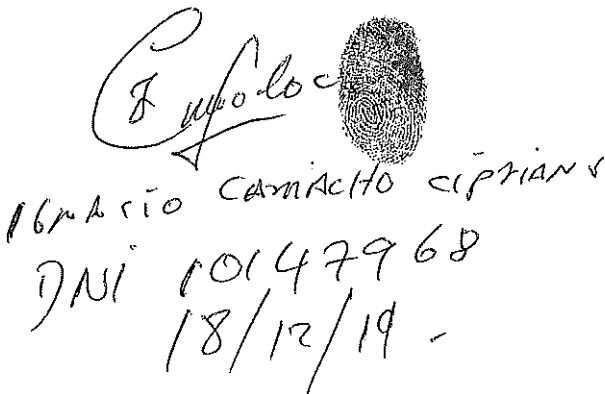 IGNACIO CAMACHO CIPRIANO
DNI 10147968
18/12/19.